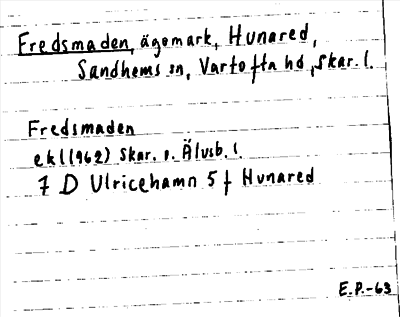 Fredsmaden, ägomark, Hunared,
Sandhems sn, Vartofta hd, Skar. l.
Fredsmaden
ekl (1962) Skar. o. Älvsb. l.
7 D Ulricehamn 5 f Hunared
E.P.-63